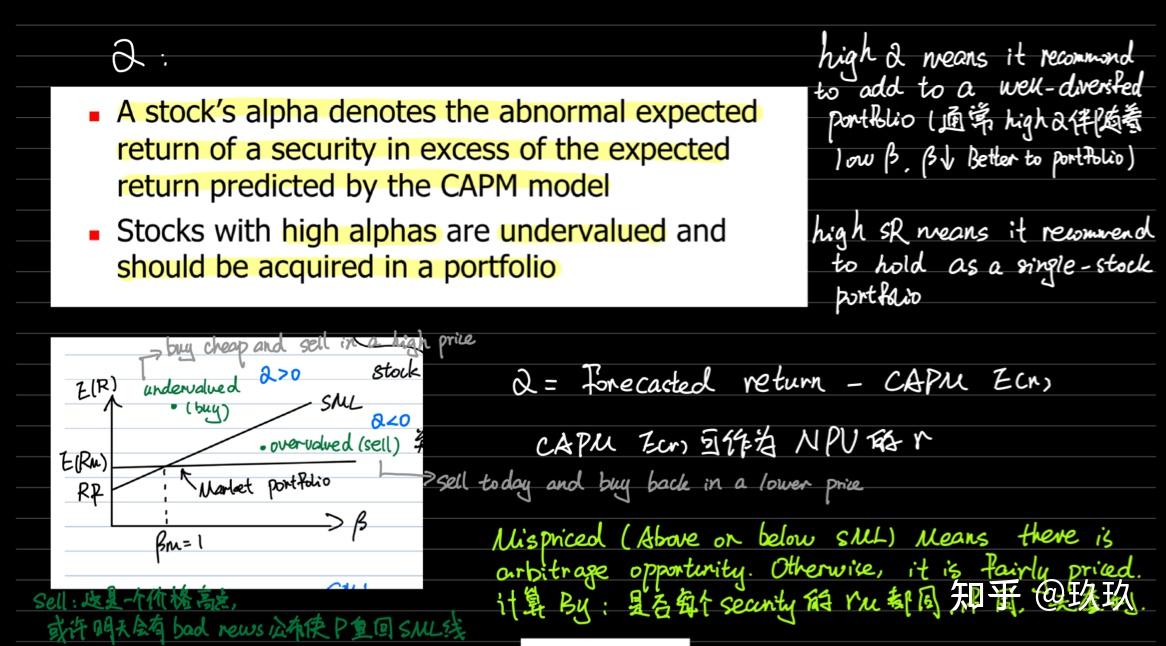 α :
▪ A stock's alpha denotes the abnormal expected
return of a security in excess of the expected
return predicted by the CAPM model
▪ Stocks with high alphas are undervalued and
should be acquired in a portfolio
high α means it recommond
to add to a well-diversifed
portfolio (通常 high α伴随着
low β, β↓ Better to portfolio)
high SR means it recommend
to hold as a single-stock
portfolio
buy cheap and sell in a high price
stock
E(R)
undervalued
(buy)
α>0
SML
α<0
overvalued (sell)
E(Rm)
RF
Market portfolio
βm=1
β
α = Forecasted return - CAPM E(r)
CAPM E(r) 可作为 NPV 的 r
sell today and buy back in a lower price
Mispriced (Above or below SML) Means there is
arbitrage opportunity. Otherwise, it is fairly priced.
计算 By: 是否每个 security 的 rm 都同
sell: 这是一个价格高点,
或许明天会有 bad news 公布使 P 重回 SML 线
知乎 @玖玖